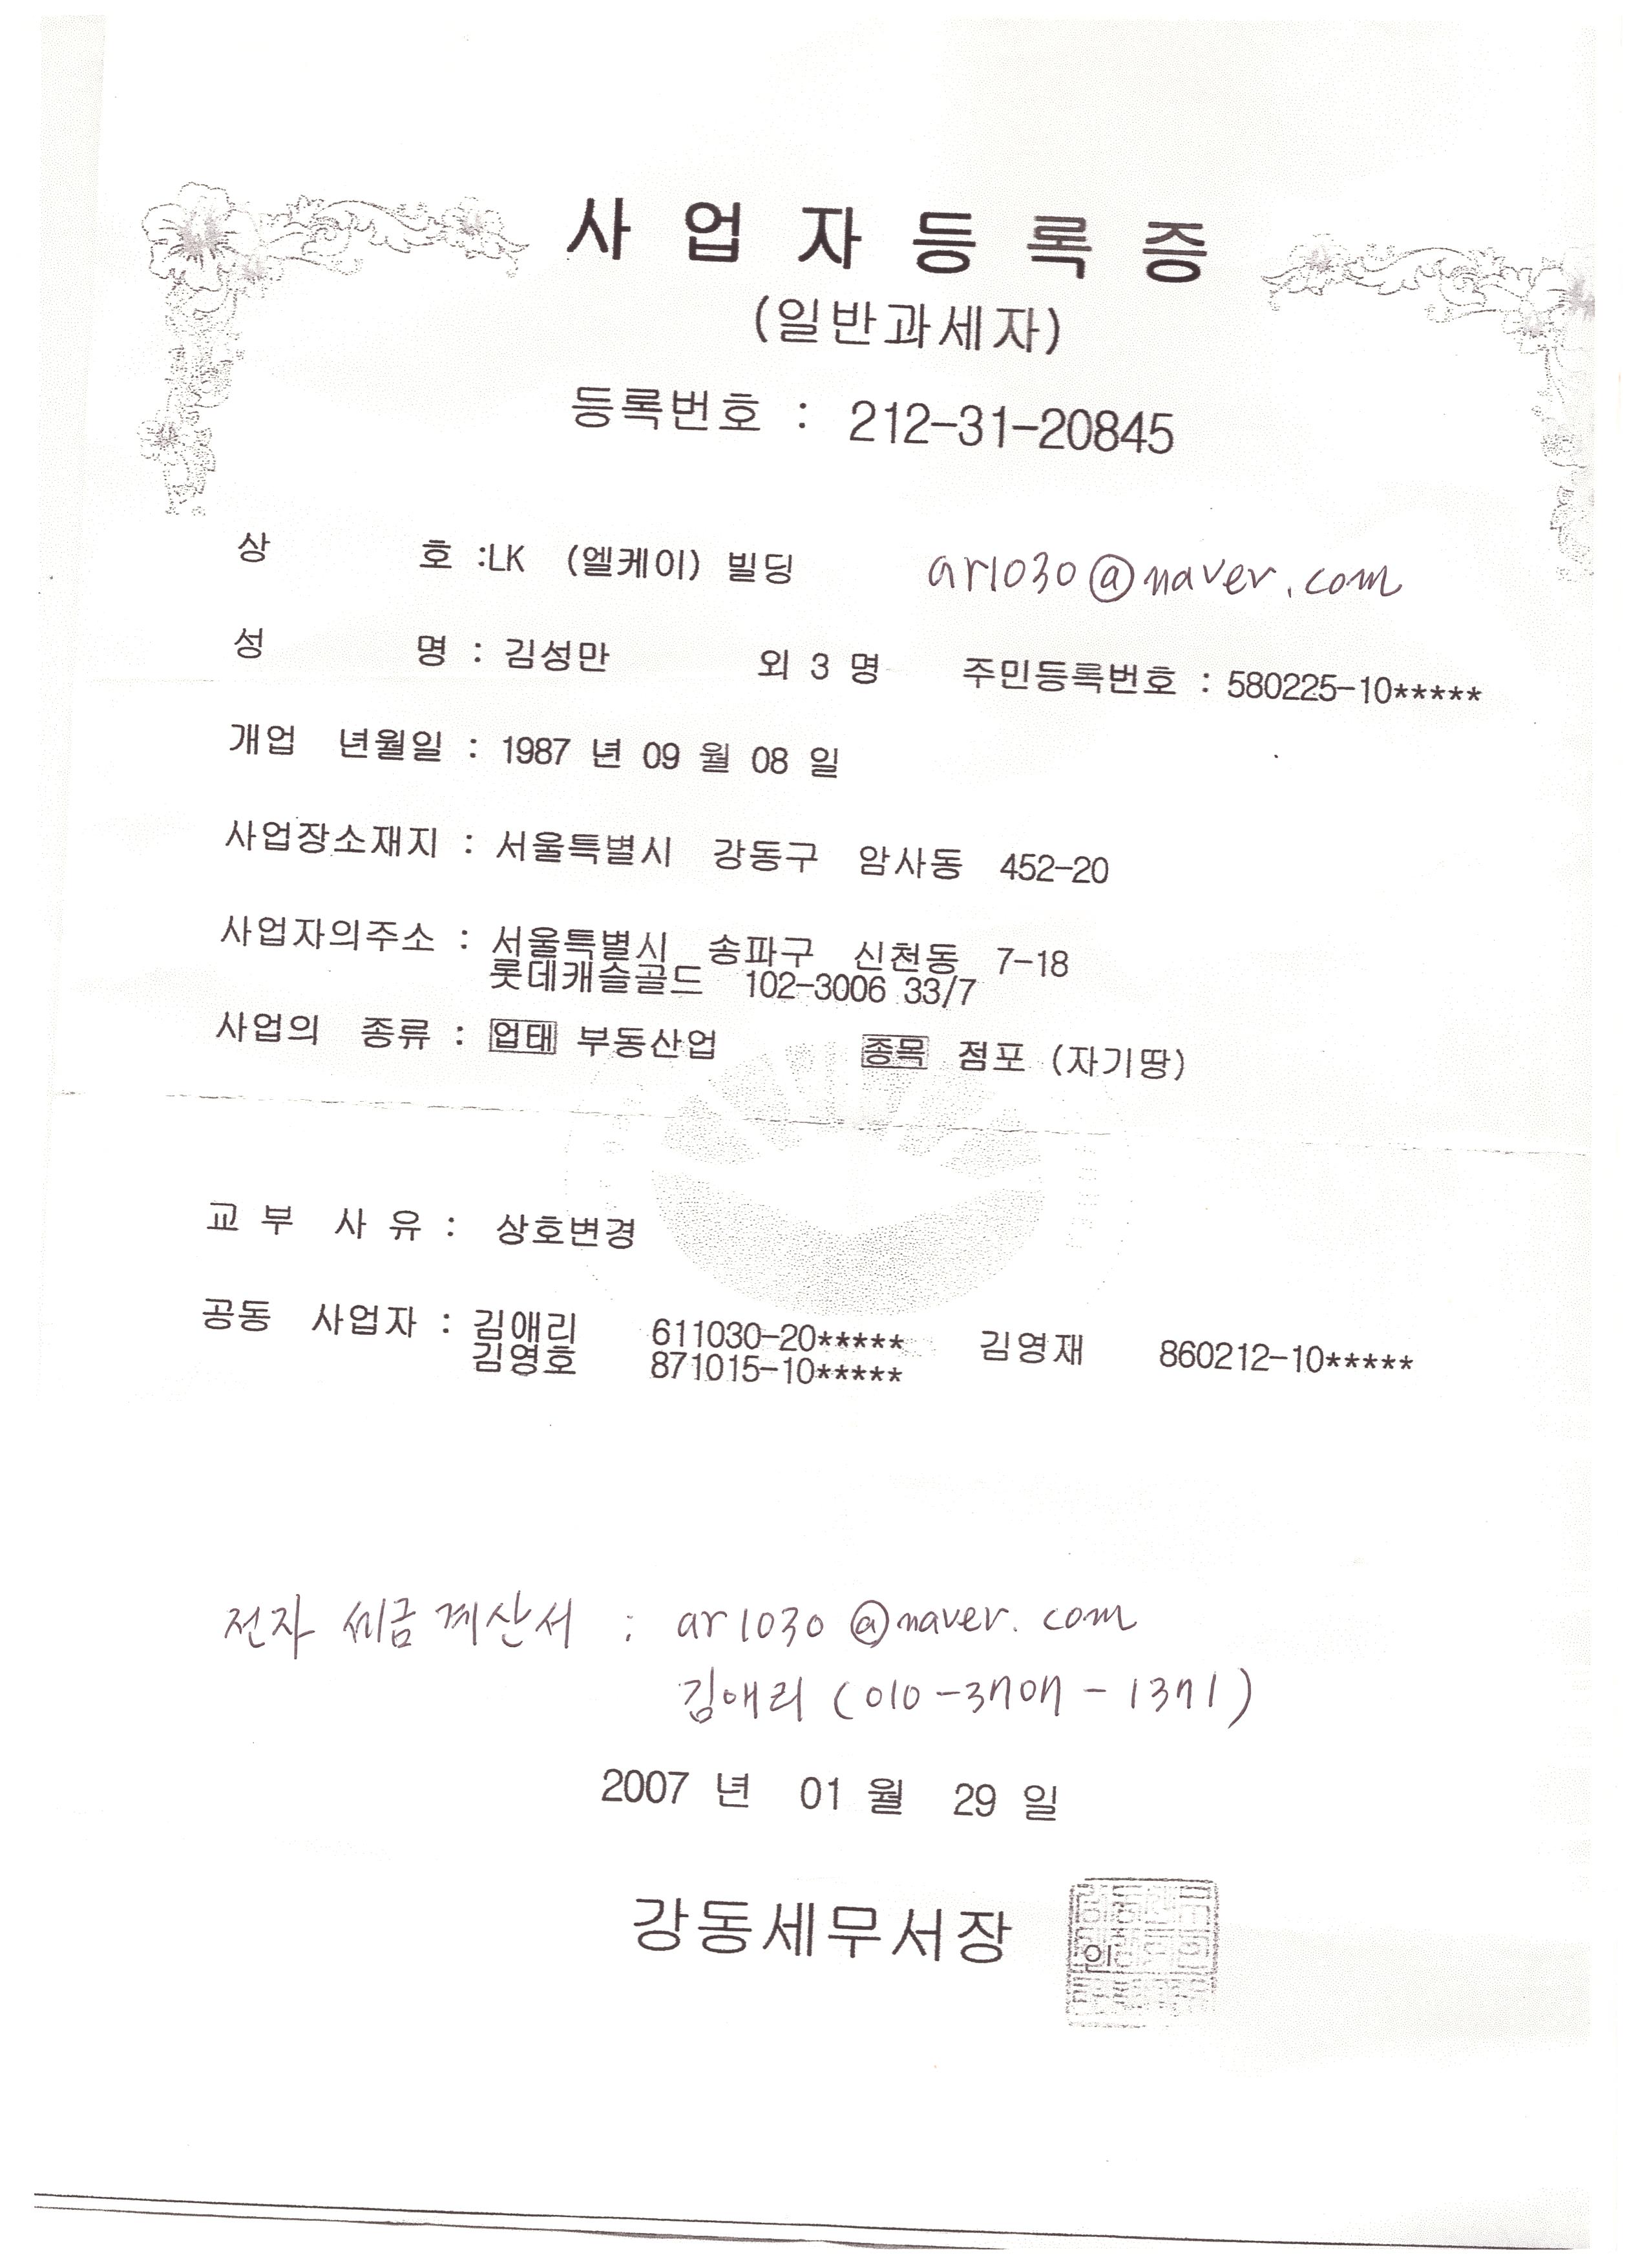 사 업 자 등 록 증
(일반과세자)
등록번호 : 212-31-20845
상 호 :LK (엘케이) 빌딩 ar1030@naver.com
성 명 : 김성만 외 3 명 주민등록번호 : 580225-10*****
개업 년월일 : 1987 년 09 월 08 일
사업장소재지 : 서울특별시 강동구 암사동 452-20
사업자의주소 : 서울특별시 송파구 신천동 7-18
롯데캐슬골드 102-3006 33/7
사업의 종류 : 업태 부동산업 종목 점포 (자기땅)
교 부 사 유 : 상호변경
공동 사업자 : 김애리 611030-20***** 김영재 860212-10*****
김영호 871015-10*****
전자 세금 계산서 : ar1030@naver.com
김애리 (010-3707-1371)
2007 년 01 월 29 일
강동세무서장
인